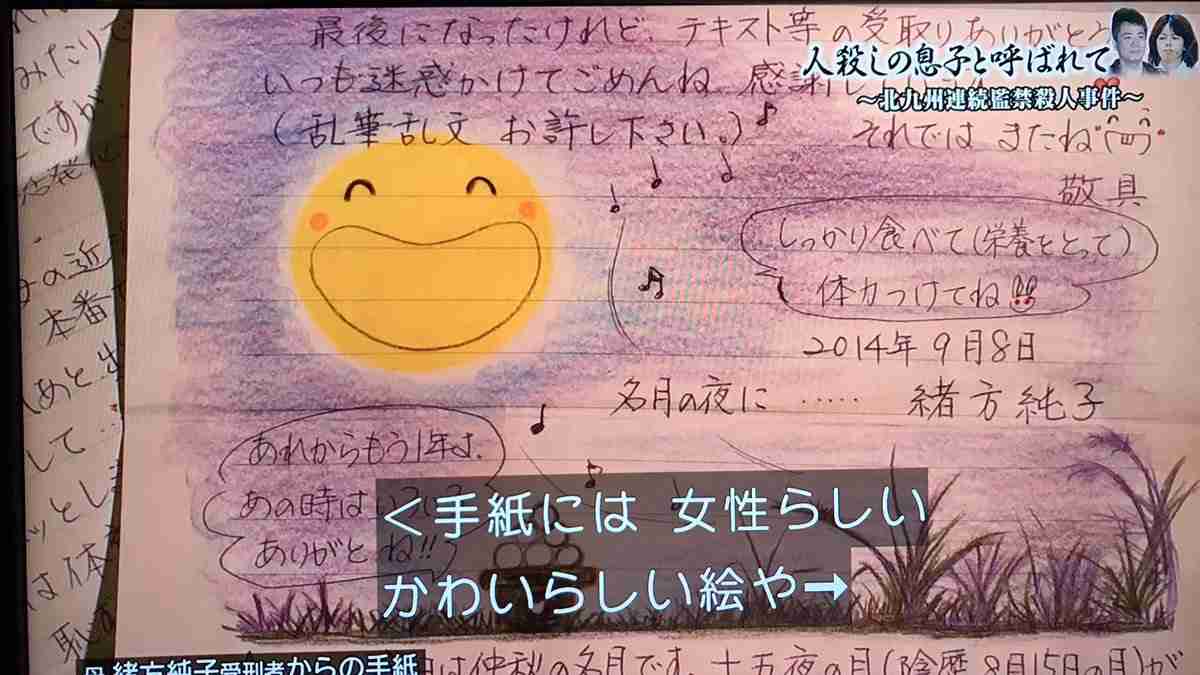 最後になったけれど、テキスト等の受取りありがと
いつも迷惑かけてごめんね 感謝し
(乱筆乱文 お許し下さい。)♪ それでは またね
敬具
人殺しの息子と呼ばれて
～北九州連続監禁殺人事件～
しっかり食べて(栄養をとって)
体力つけてね!!
2014年9月8日
名月の夜に ····· 緒方純子
あれからもう1年は、
あの時は
ありがとね!!
<手紙には 女性らしい
かわいらしい絵や➡
母 緒方純子受刑者からの手紙
は仲秋の名月です。十五夜の月(陰歴8月15日の月)が
みたりで
ですが
の近
本番
あと
して…
ッとし
は体